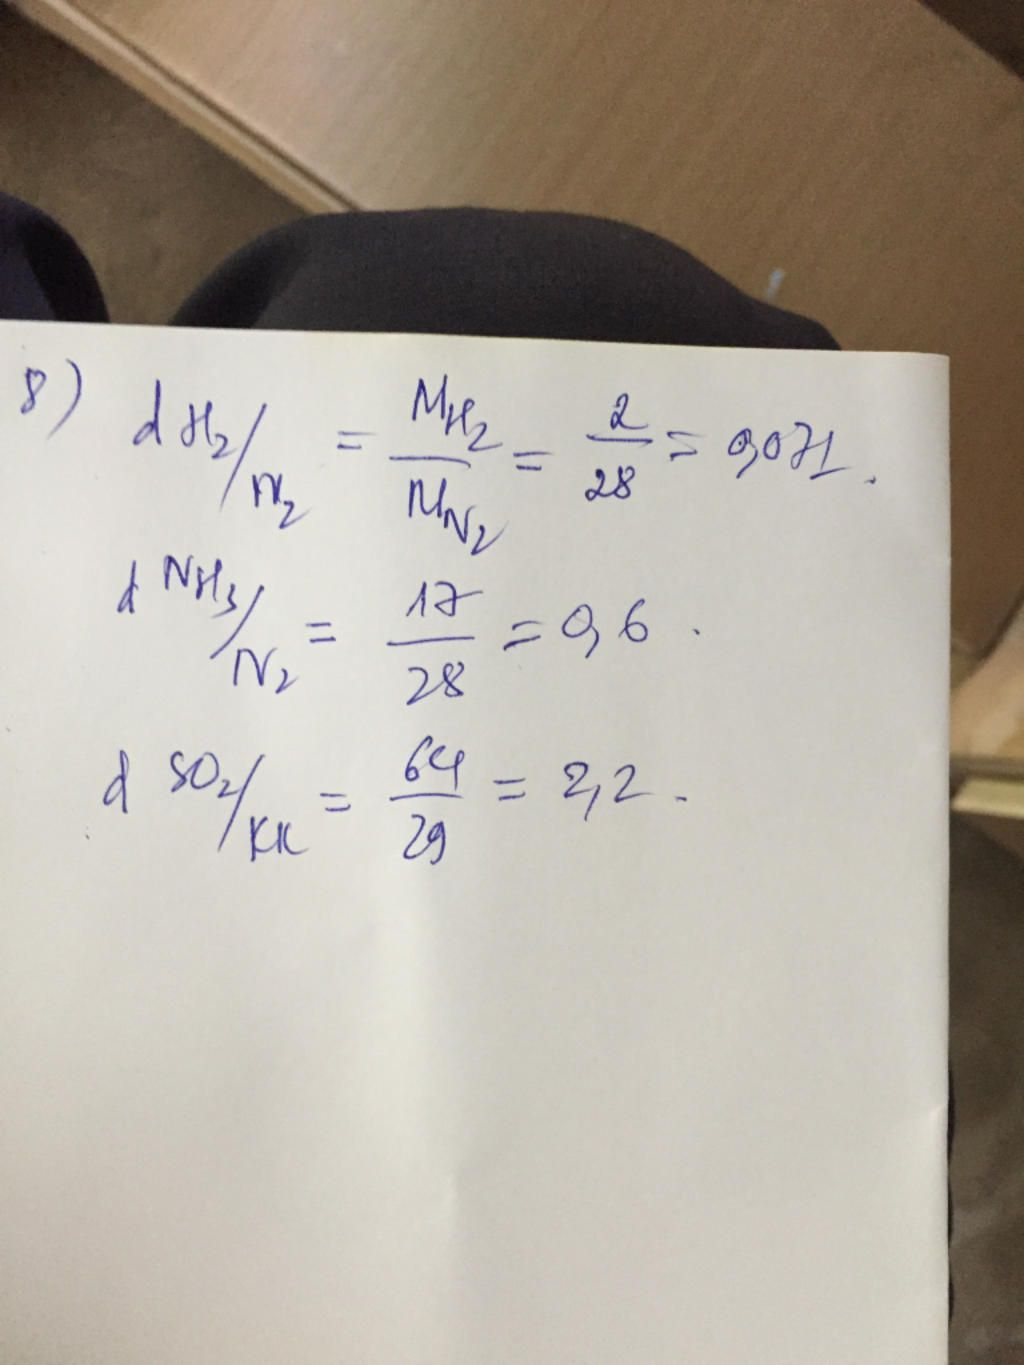 8) d H₂/N₂ = M_H₂/M_N₂ = 2/28 = 0,071.
d NH₃/N₂ = 17/28 = 0,6.
d SO₂/KK = 64/29 = 2,2.